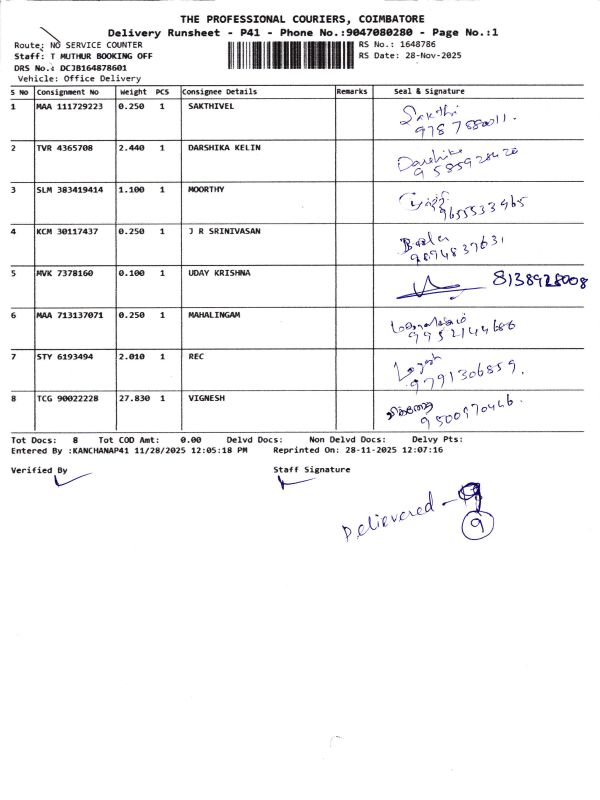 THE PROFESSIONAL COURIERS, COIMBATORE
Delivery Runsheet - P41 - Phone No.:9047080280 - Page No.:1
Route: NO SERVICE COUNTER RS No.: 1648786
Staff: T MUTHUR BOOKING OFF RS Date: 28-Nov-2025
DRS No.: DCJB164878601
Vehicle: Office Delivery
S No Consignment No Weight PCS Consignee Details Remarks Seal & Signature
1 MAA 111729223 0.250 1 SAKTHIVEL Sakthi
2 TVR 4365708 2.440 1 DARSHIKA KELIN Darshika
3 SLM 383419414 1.100 1 MOORTHY
9655533965
4 KCM 30117437 0.250 1 J R SRINIVASAN
9894837631
5 MVK 7378160 0.100 1 UDAY KRISHNA 8138928008
6 MAA 713137071 0.250 1 MAHALINGAM
9952144686
7 STY 6193494 2.010 1 REC
9791306859.
8 TCG 90022228 27.830 1 VIGNESH
9500970446.
Tot Docs: 8 Tot COD Amt: 0.00 Delvd Docs: Non Delvd Docs: Delvy Pts:
Entered By :KANCHANAP41 11/28/2025 12:05:18 PM Reprinted On: 28-11-2025 12:07:16
Verified By Staff Signature
Delievered - 9
9